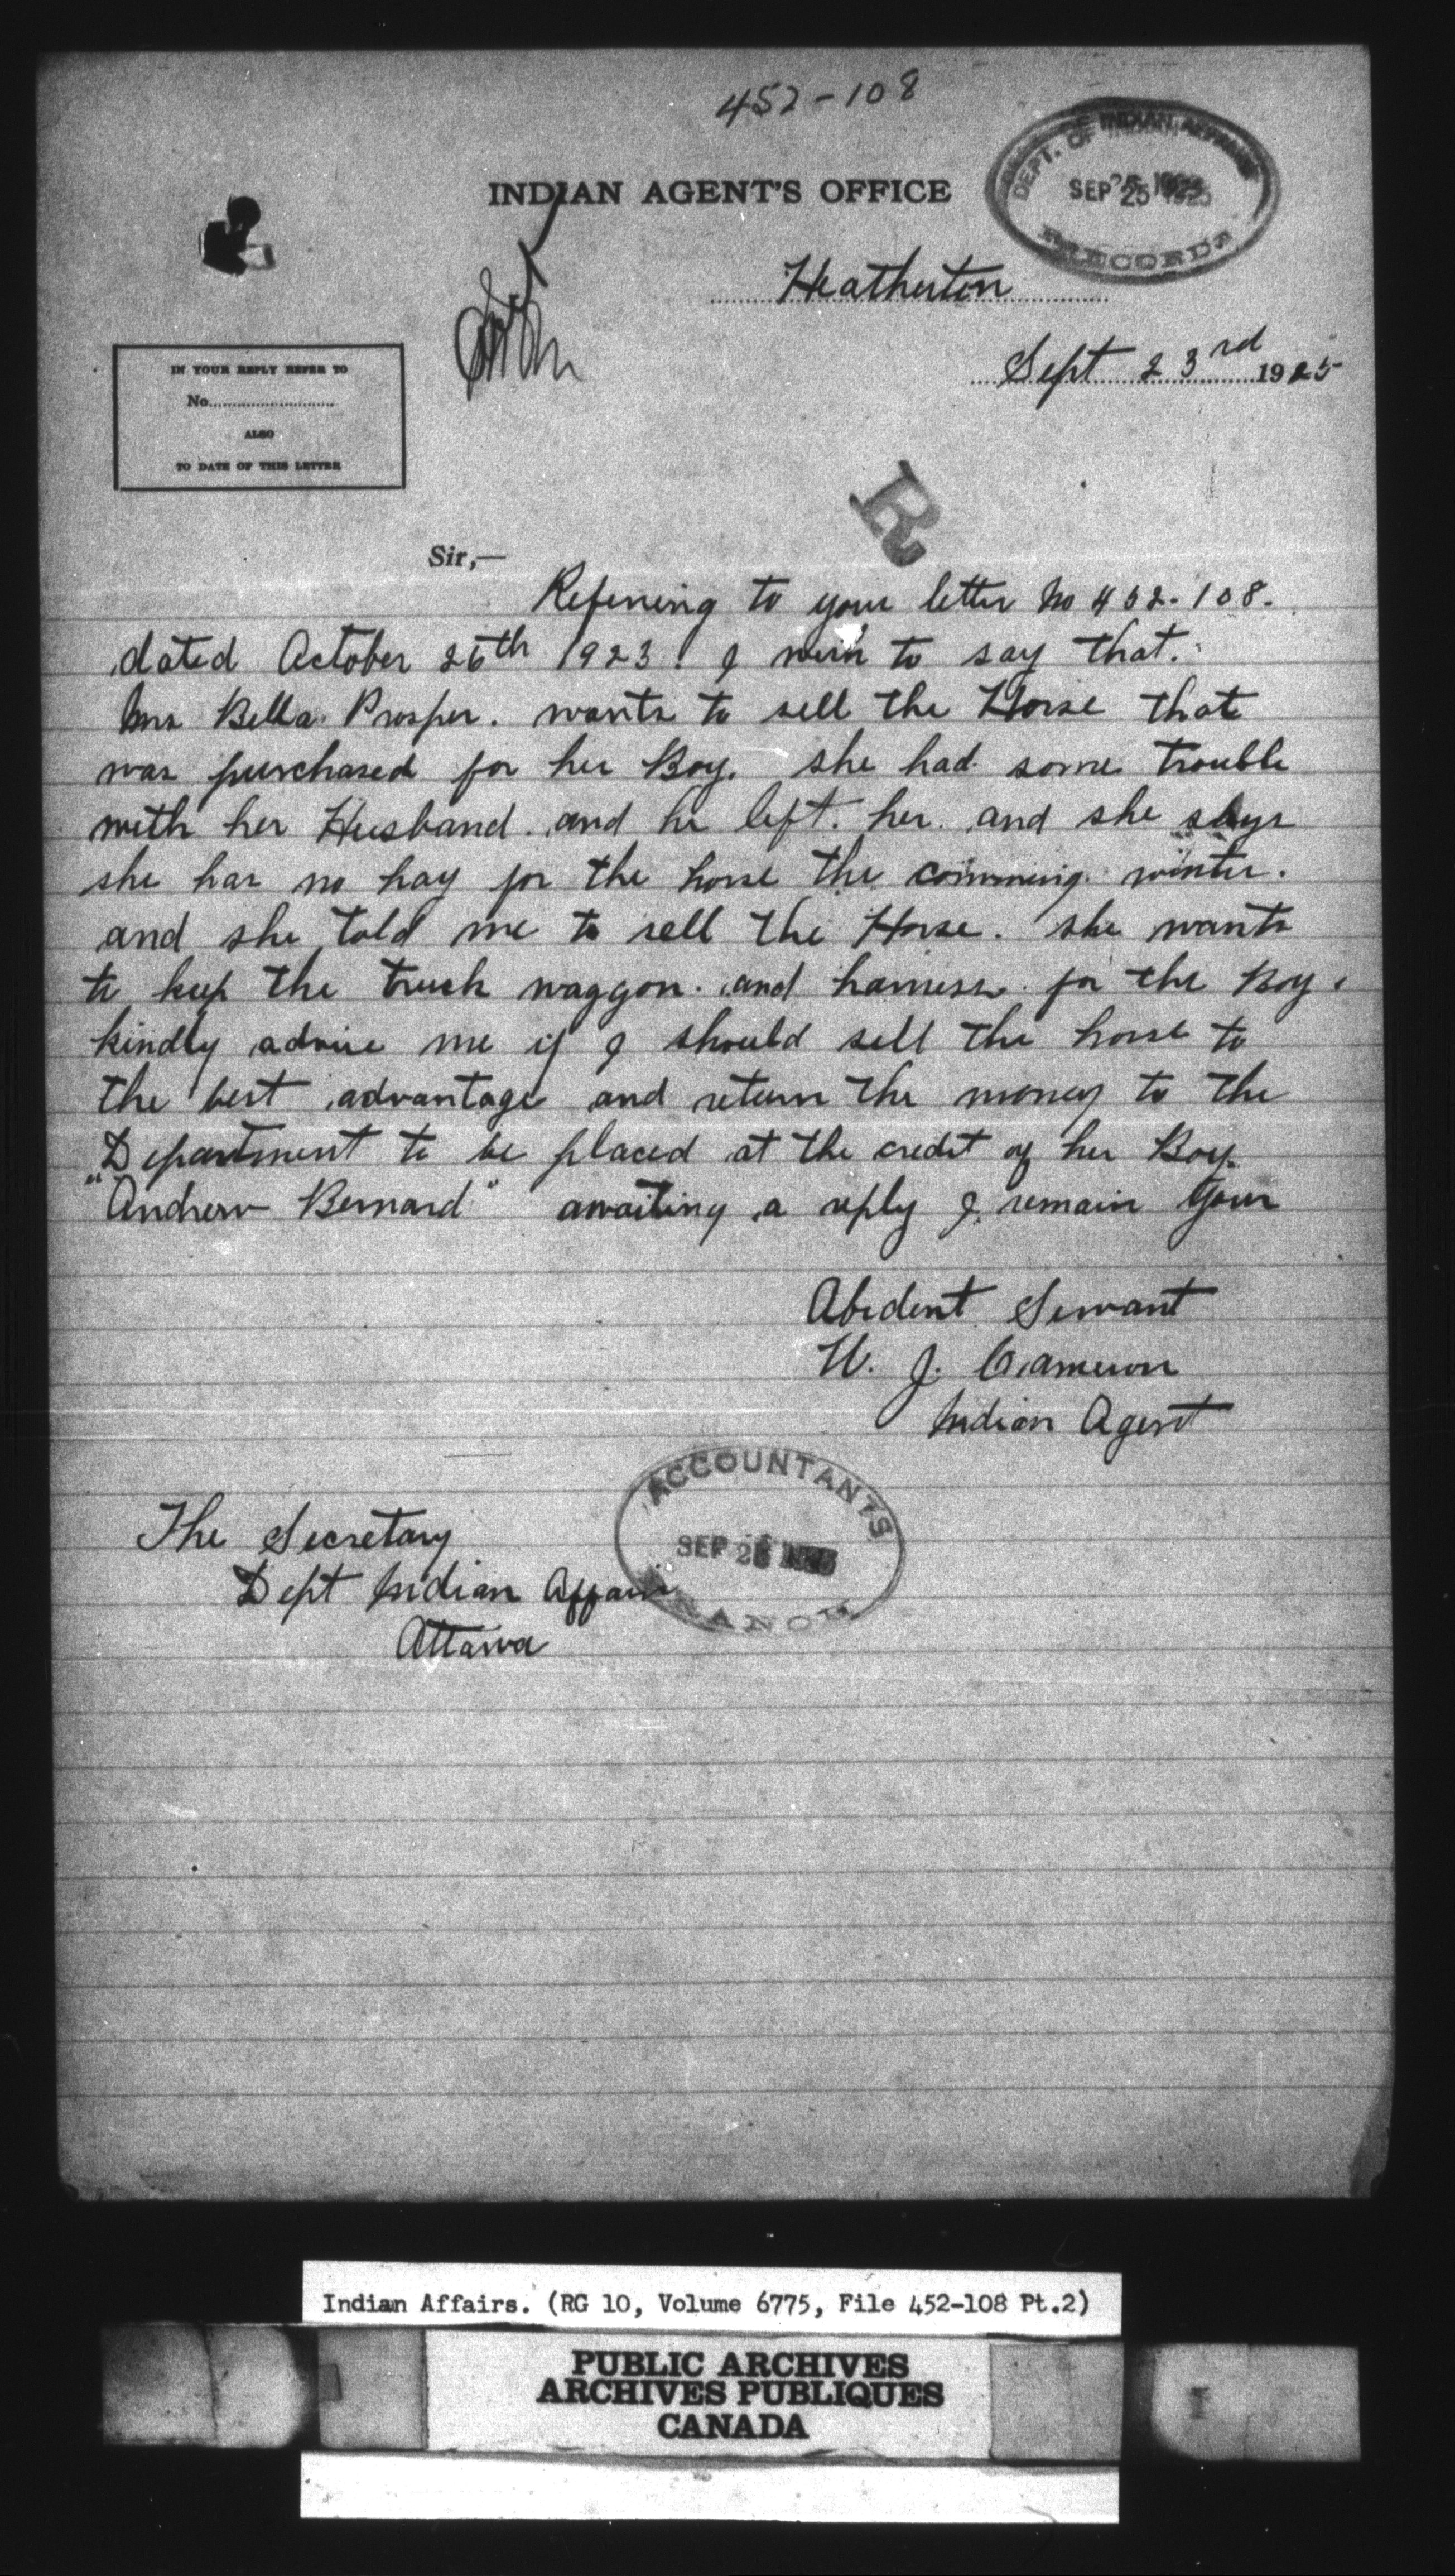 452-108
INDIAN AGENT'S OFFICE
DEPT. OF INDIAN AFFAIRS
SEP 25 1925
RECORDS
Heatherton
Sept 23rd 1925
IN YOUR REPLY REFER TO
No.
ALSO
TO DATE OF THIS LETTER
R
Sir,—
Refering to your letter No 452-108.
dated October 26th 1923. I wish to say that.
Mrs Bella Prosper. wants to sell the Horse that
was purchased for her Boy. she had some trouble
with her Husband. and he left. her. and she says
she has no hay for the horse the comming winter.
and she told me to sell the Horse. she wants
to keep the truck waggon. and harness. for the Boy.
kindly advise me if I should sell the horse to
the best advantage and return the money to the
Department to be placed at the credit of her Boy.
"Andrew Bernard" awaiting a reply I remain your
Abedent Servant
W. J. Cameron
Indian Agent
ACCOUNTANTS
SEP 26
BRANCH
The Secretary
Dept Indian Affairs
Ottawa
Indian Affairs. (RG 10, Volume 6775, File 452-108 Pt.2)
PUBLIC ARCHIVES
ARCHIVES PUBLIQUES
CANADA